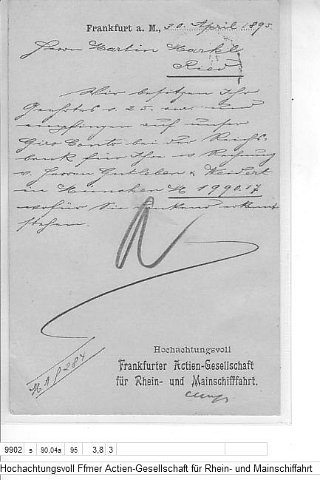 Frankfurt a. M., 30. April 1895
Herrn Martin Markl
Ried
Wir besitzen Ihr
Geehrtes v. 25. und
empfingen auf unser
Giro Conto bei der Reichs-
bank für Ihre Rechnung
v. Herren &
in München M 1990.17
wofür Sie erkannt
stehen.
Hochachtungsvoll
Frankfurter Actien-Gesellschaft
für Rhein- und Mainschifffahrt.
9902 s 90.04a 95 3,8 3
Hochachtungsvoll Ffmer Actien-Gesellschaft für Rhein- und Mainschiffahrt